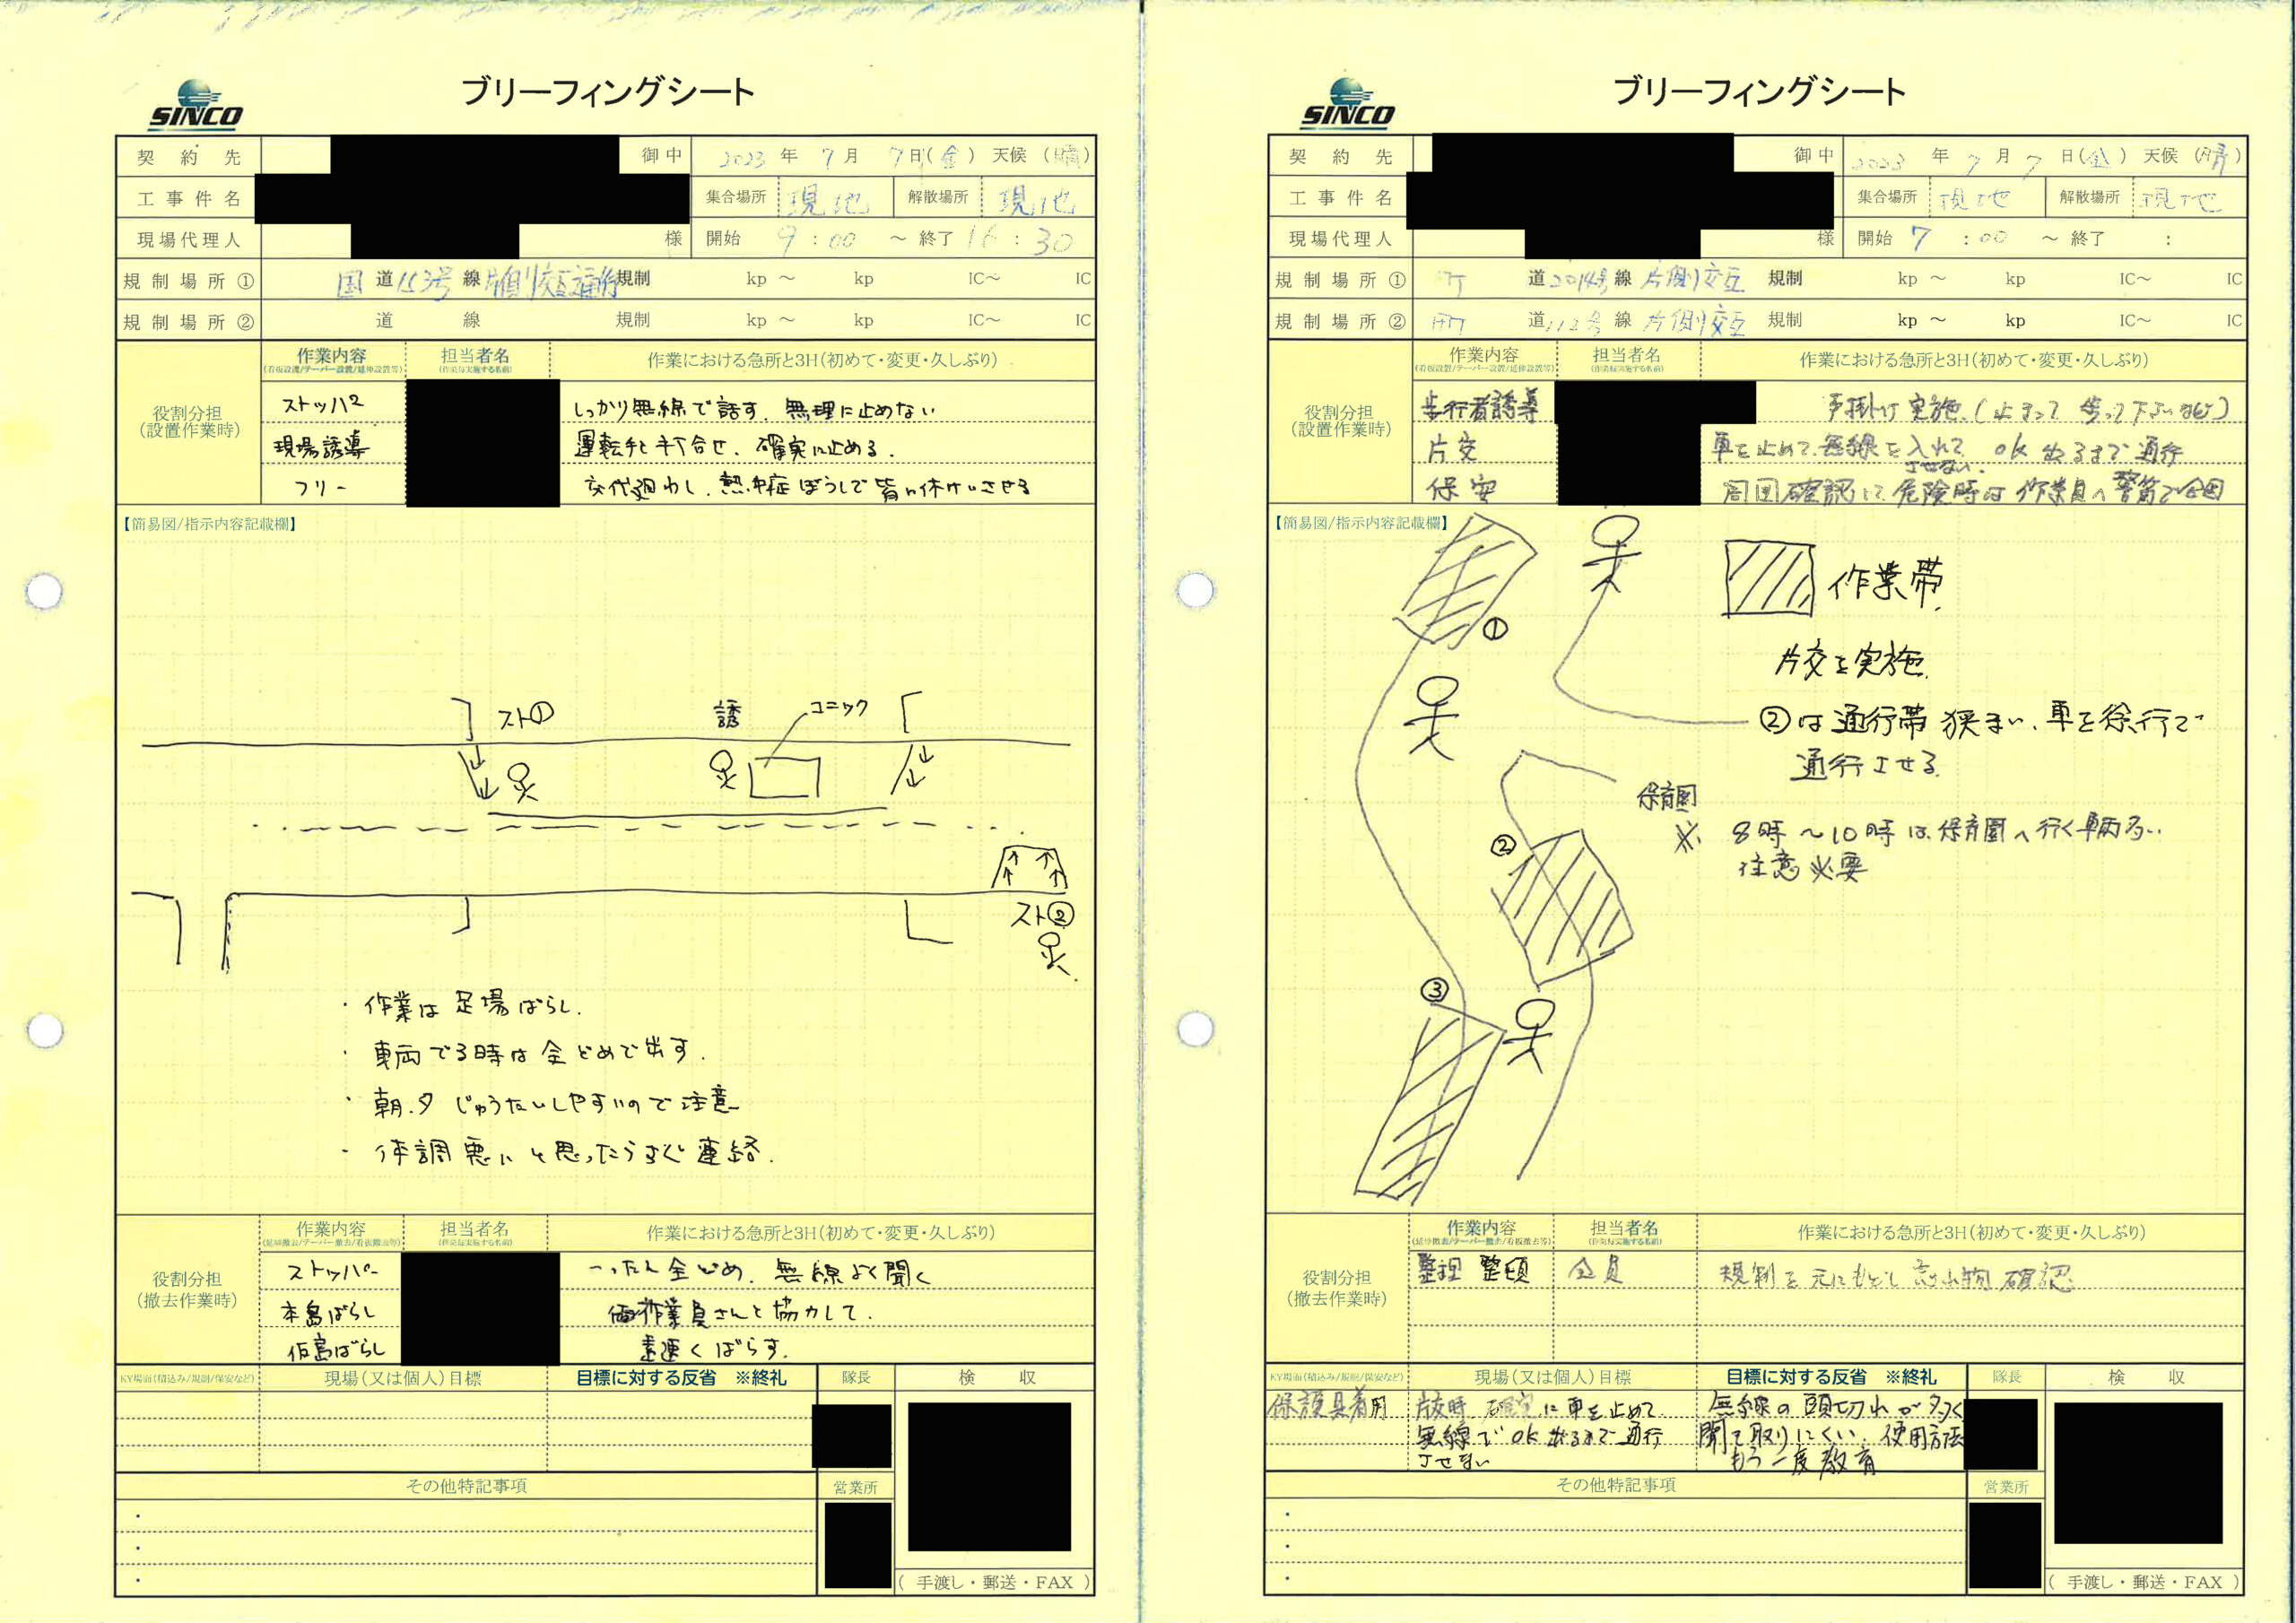 ブリーフィングシート
SINCO
契約先 御中 2023年7月7日(金) 天候(晴)
工事件名 集合場所 現地 解散場所 現地
現場代理人 様 開始 9:00 ～ 終了 16:30
規制場所① 国道153号線片側交互通行規制 kp～ kp IC～ IC
規制場所② 道 線 規制 kp～ kp IC～ IC
役割分担
(設置作業時)
作業内容 担当者名 作業における急所と3H(初めて・変更・久しぶり)
(看板設置/テーパー設置/延伸設置等) (作業毎実施する名前)
ストッパ2 しっかり無線で話す、無理に止めない
現場誘導 運転手と打合せ、確実に止める.
フリー 交代廻わし、熱中症ぼうしで皆い休けいさせる
【簡易図/指示内容記載欄】
スト① 誘 ユニック
スト②
・作業は足場ばらし.
・車両でる時は全どめで出す.
・朝.夕じゅうたいしやすいので注意
・体調悪いと思ったらすぐ連絡.
役割分担
(撤去作業時)
作業内容 担当者名 作業における急所と3H(初めて・変更・久しぶり)
(延伸撤去/テーパー撤去/看板撤去等) (作業毎実施する名前)
ストッパー いったん全どめ、無線よく聞く
本島ばらし 作業員さんと協力して.
仮島ばらし 素速くばらす.
KY場面(積込み/規制/保安など) 現場(又は個人)目標 目標に対する反省 ※終礼 隊長 検収
その他特記事項 営業所
・
・
・
(手渡し・郵送・FAX)
ブリーフィングシート
SINCO
契約先 御中 2023年7月7日(金) 天候(晴)
工事件名 集合場所 現地 解散場所 現地
現場代理人 様 開始 7:00 ～ 終了 :
規制場所① 町道2014号線片側交互規制 kp～ kp IC～ IC
規制場所② 町道112号線片側交互規制 kp～ kp IC～ IC
役割分担
(設置作業時)
作業内容 担当者名 作業における急所と3H(初めて・変更・久しぶり)
(看板設置/テーパー設置/延伸設置等) (作業毎実施する名前)
歩行者誘導 声掛け実施、(止まって 歩って下さいなど)
片交 車を止めて無線を入れて OK出るまで通行
させない.
保安 周囲確認して危険時は作業員へ警笛で合図
【簡易図/指示内容記載欄】
① 作業帯.
片交を実施.
②は通行帯狭まい、車を徐行で
通行させる.
保育園
※ 8時～10時は、保育園へ行く車両多い
注意必要
②
③
役割分担
(撤去作業時)
作業内容 担当者名 作業における急所と3H(初めて・変更・久しぶり)
(延伸撤去/テーパー撤去/看板撤去等) (作業毎実施する名前)
整理 整頓 全員 規制を元にもどし忘れ物確認
KY場面(積込み/規制/保安など) 現場(又は個人)目標 目標に対する反省 ※終礼 隊長 検収
保護具着用 片交時 確実に車を止めて 無線の頭切れが多く
無線でOK出るまで通行 聞き取りにくい、使用方法
させない もう一度教育
その他特記事項 営業所
・
・
・
(手渡し・郵送・FAX)